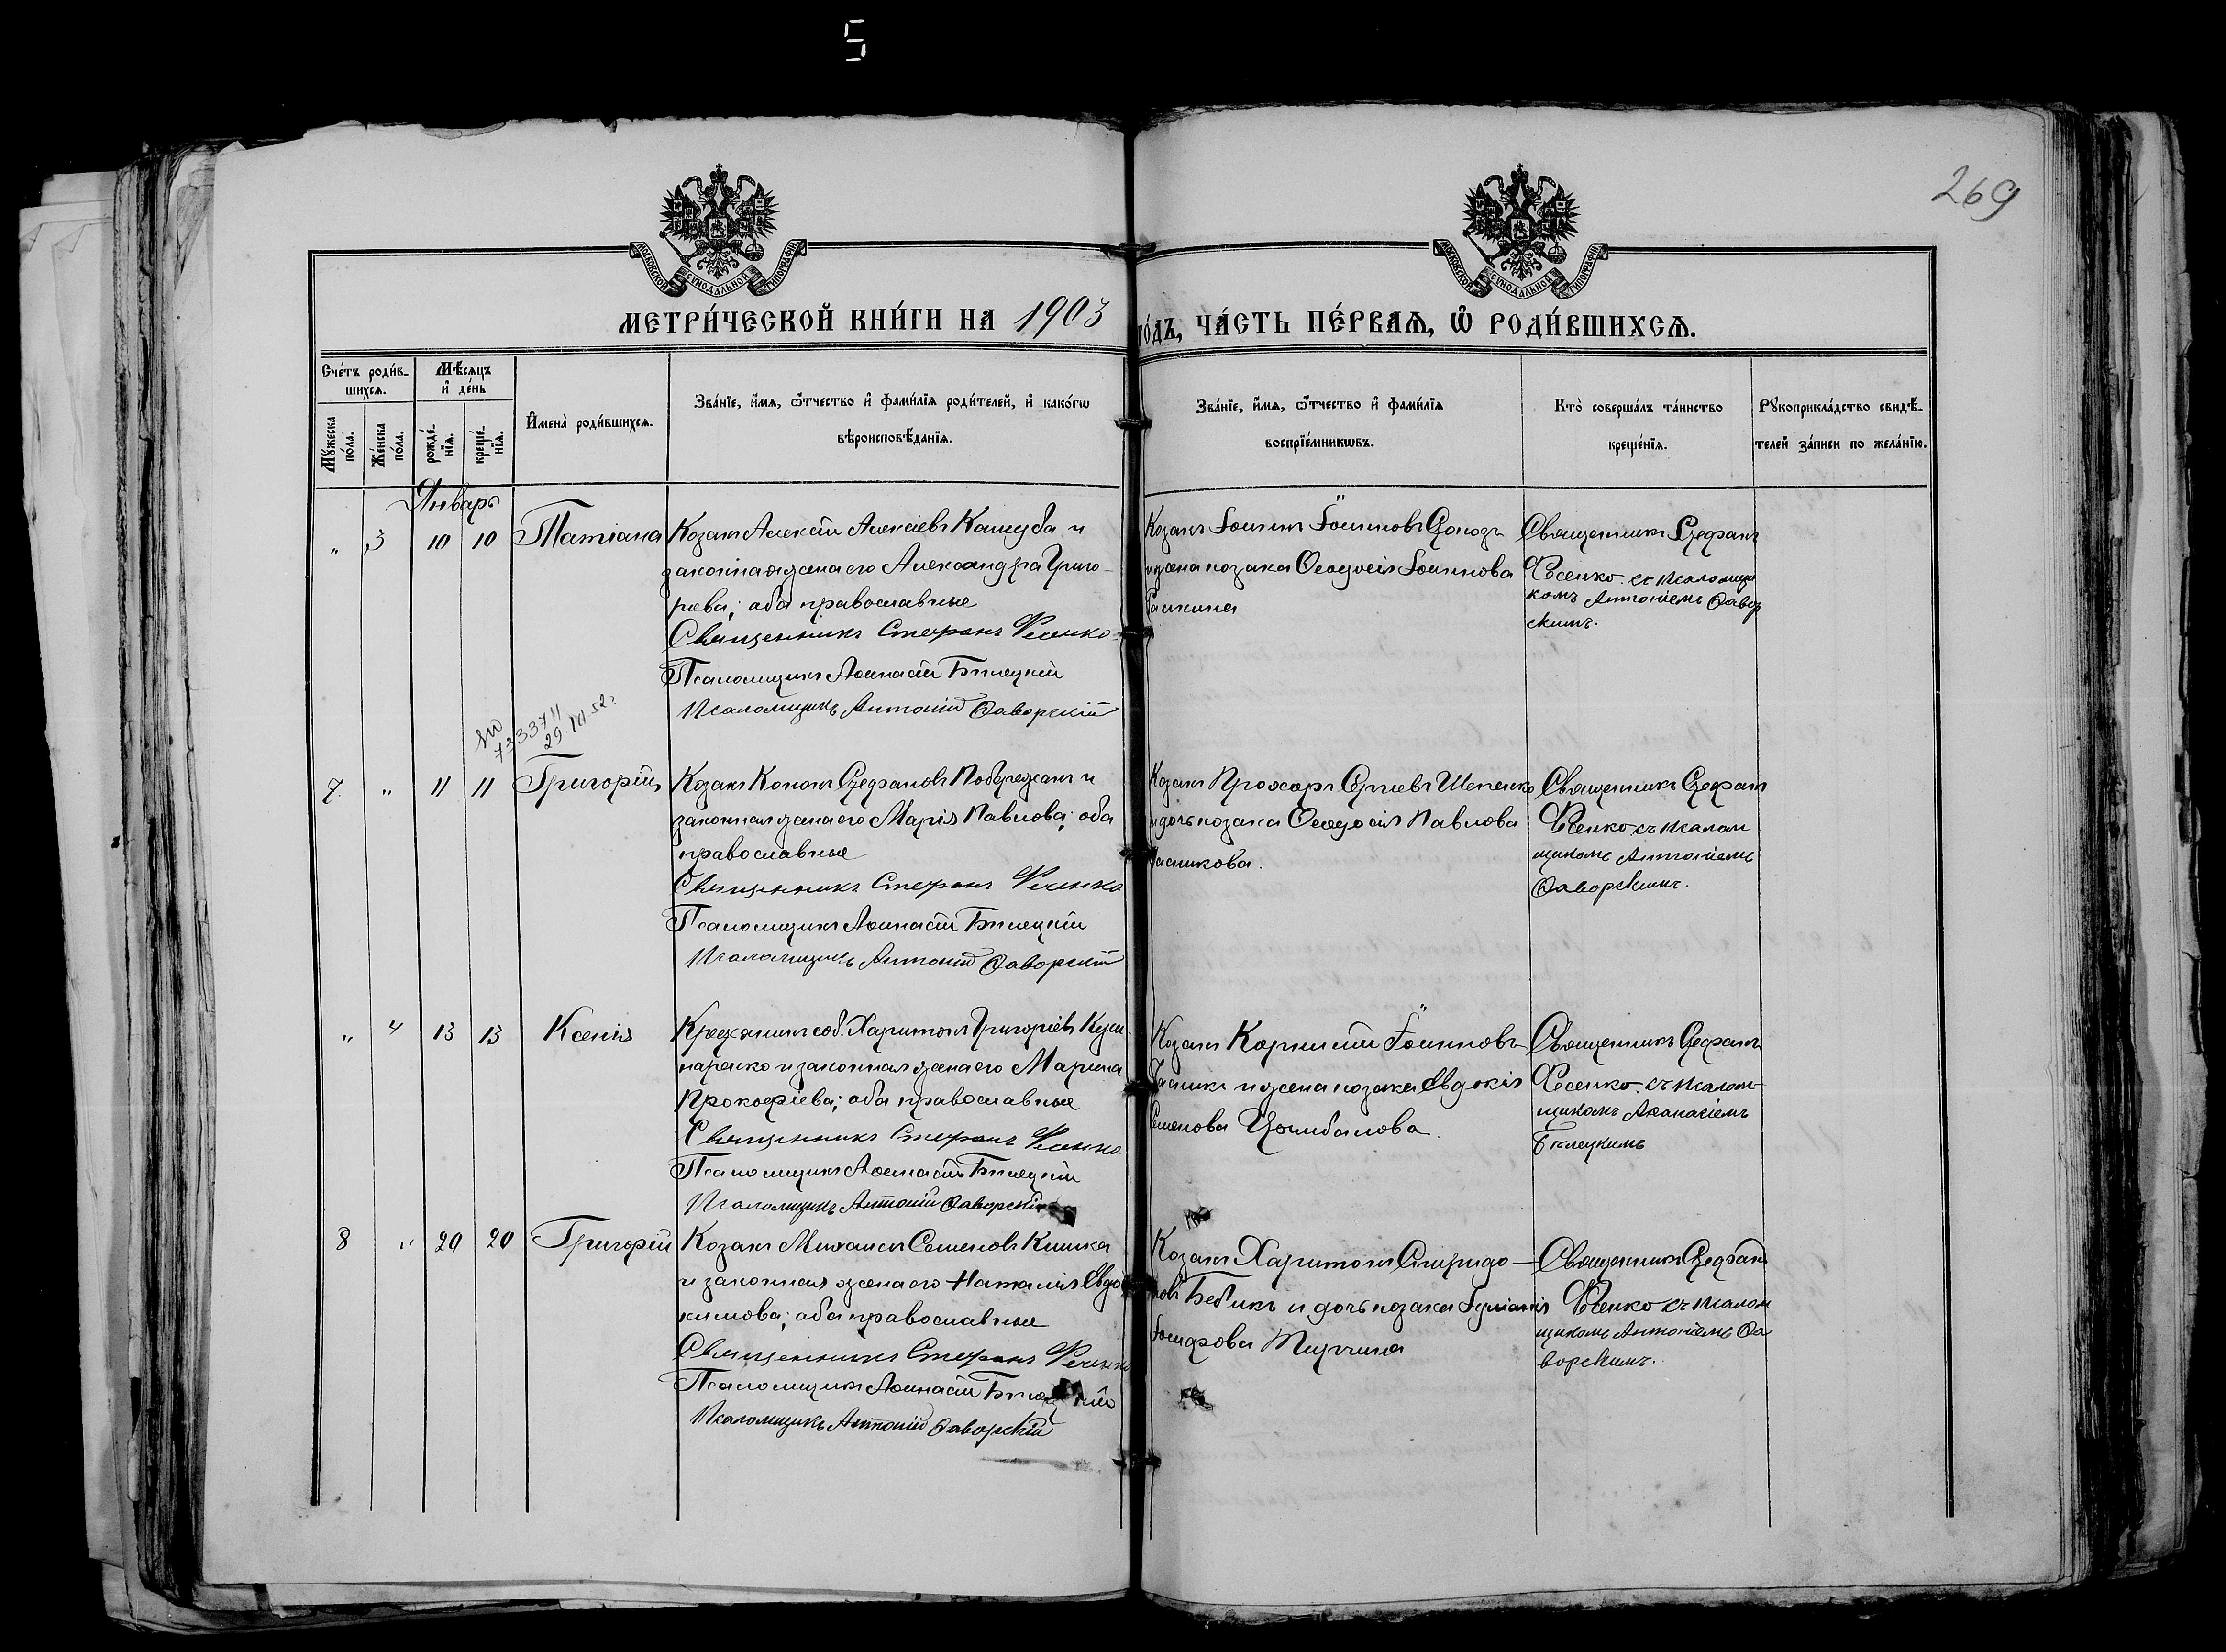 5
269
МОСКОВСКОЙ СѴНОДАЛЬНОЙ ТИПОГРАФІИ
МОСКОВСКОЙ СѴНОДАЛЬНОЙ ТИПОГРАФІИ
МЕТРИ́ЧЕСКОЙ КНИ́ГИ НА 1903 ГО́ДЪ, ЧА́СТЬ ПЕ́РВАѦ, Ѽ РОДИ́ВШИХСѦ.
Сче́тъ роди́в-
шихсѧ.
Мꙋ́жеска
по́ла.
Же́нска
по́ла.
Мѣ́сѧцъ
и҆ де́нь
рожде́-
нїѧ.
креще́-
нїѧ.
И҆мена̀ роди́вшихсѧ.
Зва́нїе, и҆́мѧ, ѻ҆́тчество и҆ фами́лїѧ роди́телей, и҆ како́гѡ
вѣроисповѣ́данїѧ.
Зва́нїе, и҆́мѧ, ѻ҆́тчество и҆ фами́лїѧ
воспрїе́мникѡвъ.
Кто̀ соверша́лъ та́инство
креще́нїѧ.
Рꙋкоприкла́дство свидѣ́-
телей за́писи по жела́нїю.
Январь
„ 3 10 10 Татіана
Козакъ Алексѣй Алексіевъ Кашуба и
законная жена его Александра Григо-
рьева; оба православные
Священникъ Стефанъ Фесенко
Псаломщикъ Аѳанасій Бѣлецкій
Псаломщикъ Антоній Яворскій
Козакъ Іоаннъ Іоанновъ
и жена козака Ѳеодосія Іоаннова
Священникъ Стефанъ
Фесенко съ псаломщи
комъ Антоніемъ Явор
скимъ.
29. IV 52.
7. „ 11 11 Григорій
Козакъ Кононъ Стефановъ Побережакъ и
законная жена его Марія Павлова; оба
православные
Священникъ Стефанъ Фесенко
Псаломщикъ Аѳанасій Бѣлецкій
Псаломщикъ Антоній Яворскій
Козакъ Прохоръ Сергіевъ Шепенко
и дочь козака Ѳеодосія Павлова
Священникъ Стефанъ
Фесенко съ псалом
щикомъ Антоніемъ
Яворскимъ.
„ 4 13 13 Ксенія
Крестьянинъ соб. Харитонъ Григоріевъ
и законная жена его Марина
Прокофіева; оба православные
Священникъ Стефанъ Фесенко
Псаломщикъ Аѳанасій Бѣлецкій
Псаломщикъ Антоній Яворскій
Козакъ Корнилій Іоанновъ
и жена козака Евдокія
Семенова Цымбалова.
Священникъ Стефанъ
Фесенко съ псалом-
щикомъ Аѳанасіемъ
Бѣлецкимъ
8 „ 20 20 Григорій
Козакъ Михаилъ Семеновъ Кишка
и законная жена его Наталія Евдо
кимова; оба православные
Священникъ Стефанъ Фесенко
Псаломщикъ Аѳанасій Бѣлецкій
Псаломщикъ Антоній Яворскій
Козакъ Харитонъ Спиридо-
новъ Бебикъ и дочь козака Іуліанія
Іосифова
Священникъ Стефанъ
Фесенко съ псалом
щикомъ Антоніемъ Я
ворскимъ.